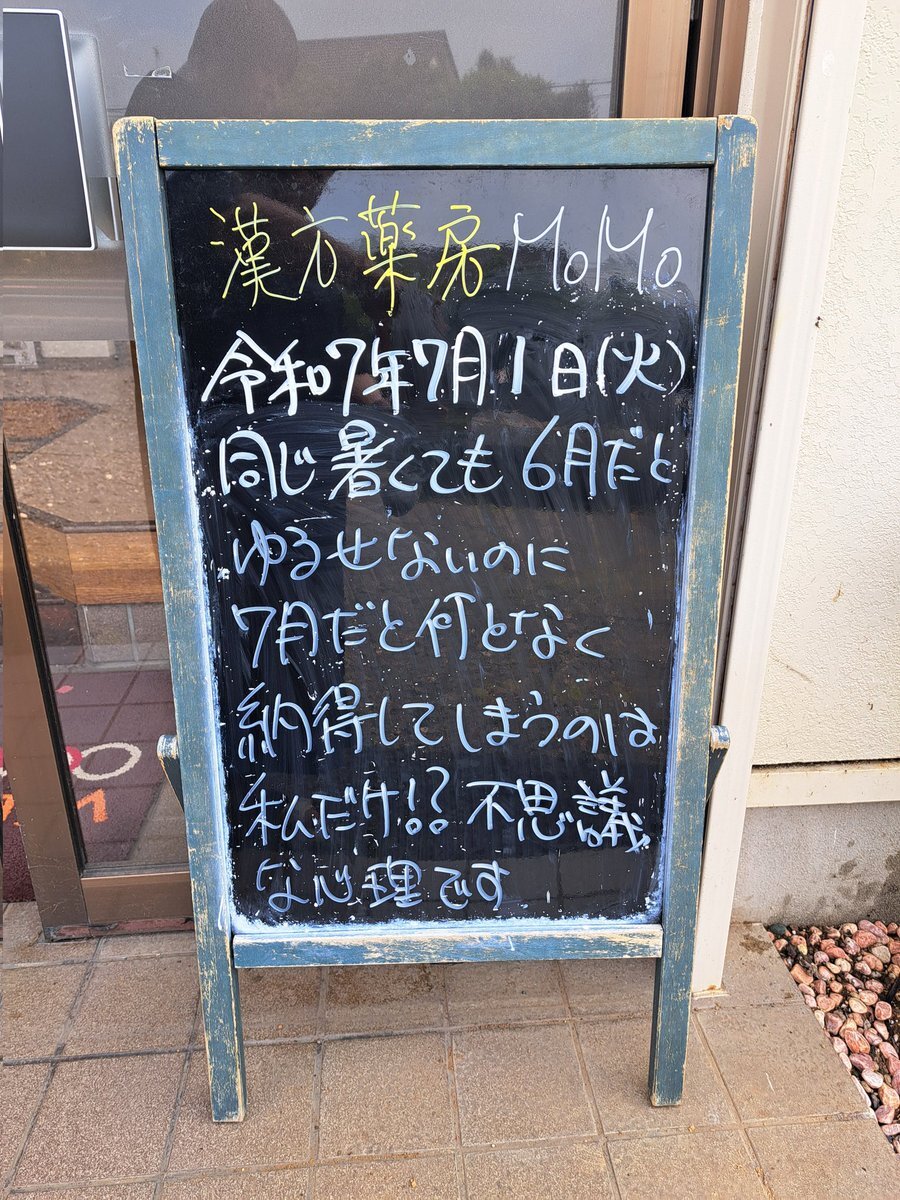 漢方薬房 MoMo
令和7年7月1日(火)
同じ暑くても6月だと
ゆるせないのに
7月だと何となく
納得してしまうのは
私だけ!? 不思議
な心理です